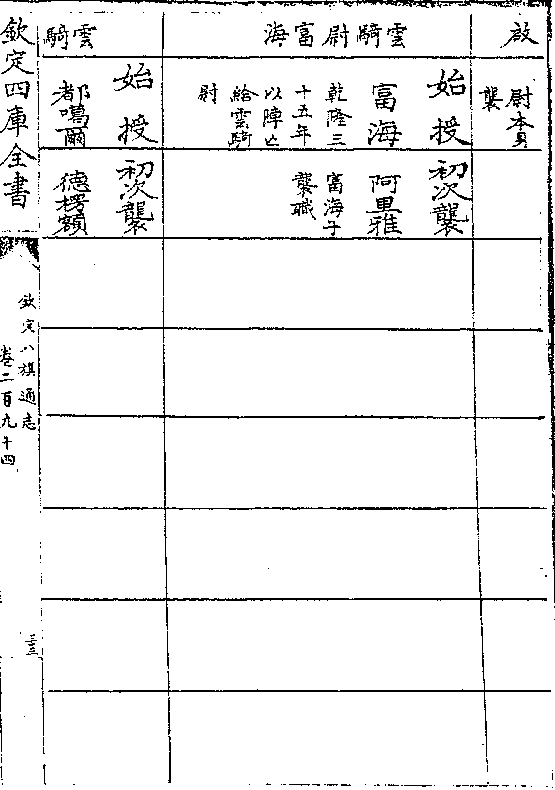 啟
尉本身
襲
雲騎尉富海
始授
富海
乾隆三
十五年
以陣亡
給雲騎
尉
初次襲
阿里雅
富海子
襲職
雲騎
始授
都噶爾
初次襲
德楞額
欽定四庫全書
欽定八旗通志
卷二百九十四
三三